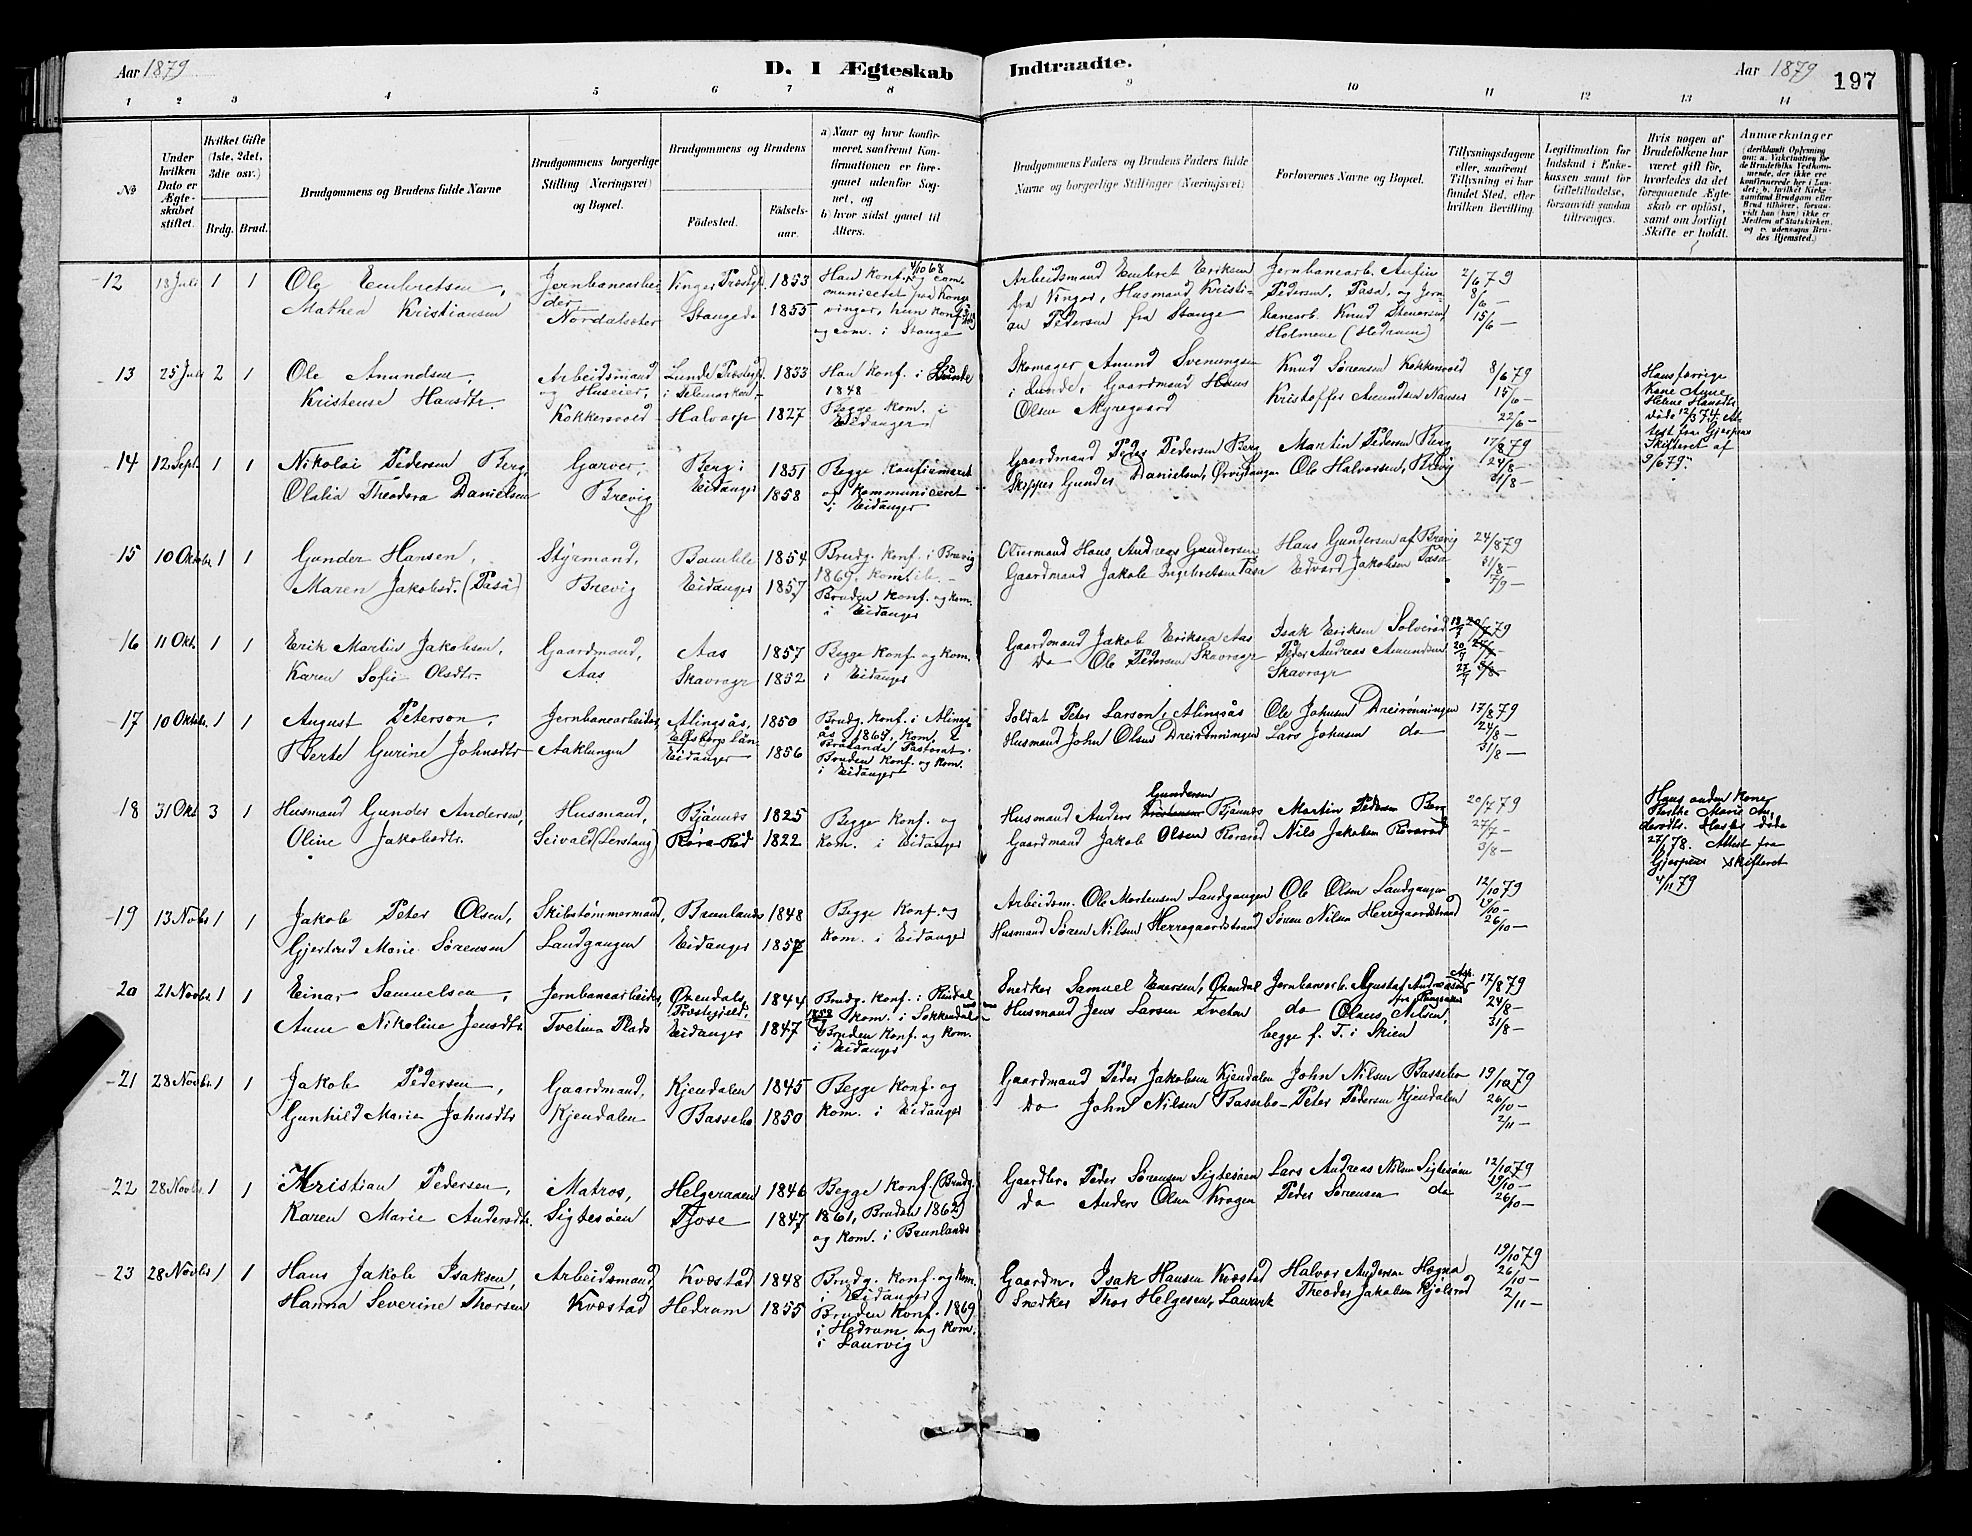 Aar 1879 D. I Ægteskab Indtraadte. Aar 1879 197
1 2 3 4 5 6 7 8 9 10 11 12 13 14
No
Under hvilken Dato er Ægteskabet stiftet.
Hvilket Gifte (1ste, 2det, 3die osv.)
Brdg. Brud.
Brudgommens og Brudens fulde Navne
Brudgommens borgerlige Stilling (Næringsvei) og Bopæl.
Brudgommens og Brudens
Fødested. Fødselsaar.
a) Naar og hvor konfirmeret, saafremt Konfirmationen er foregaaet udenfor Sognet, og
b) hvor sidst gaaet til Alters.
Brudgommens Faders og Brudens Faders fulde Navne og borgerlige Stillinger (Næringsvei)
Forlovernes Navne og Bopæl.
Tillysningsdagene eller, saafremt Tillysning ei har fundet Sted, efter hvilken Bevilling.
Legitimation for Indskud i Enkekassen samt for Giftetilladelse, forsaavidt saadan tiltrænges.
Hvis nogen af Brudefolkene har været gift før, hvorledes da det foregaaende Ægteskab er opløst, samt om lovligt Skifte er holdt.
Anmærkninger
12 18 Juli 1 1 Ole Embretsen, Jernbanearbei- Vinger Præstgj. 1853 Han konf. 4/10 68 og com- Arbeidsmand Embret Eriksen Jernbanearb. Anfin 2/6 79
Mathea Kristiansen der Nordalsæter Stange do 1855 municeret fra Kongsvinger, hun konf. og com. i Stange fra Vinger, Husmand Kristian Pedersen fra Stange Pedersen, Pasa, og Jernbanearb. Knud Stenersen Holmene (Hedrum) 8/6 – 15/6 –
13 25 Juli 2 1 Ole Amundsen, Arbeidsmand Lunde Præstegj. 1833 Han Konf. i Lunde Skomager Amund Svenungsen Knud Sørensen Kokkersvold 8/6 79
Kristense Hansdtr. og Huseier, Kokkersvold i Telemarken – Halvarp 1827 1848 Begge kom. i Eidanger i Lunde, Gaardmand Hans Olsen Myregaard Kristoffer Amundsen Nanset 15/6 – 22/6 –
Hans forrige Kone Anne Helene Hansdtr. døde 12/3 74. Attest fra Gjerpens Skifteret af 9/6 79.
14 12 Sept. 1 1 Nikolai Pedersen Berg, Garver, Berg i 1851 Begge Konfirmeret Gaardmand Peder Pedersen Berg Martin Pedersen Berg 17/8 79
Olalia Theodora Danielsen Brevig Eidanger 1858 og kommuniceret i Eidanger Skipper Gunder Danielsen, Ørvigtangen Ole Halvorsen, Brevig 24/8 – 31/8 –
15 10 Oktober 1 1 Gunder Hansen, Styrmand, Bamble 1854 Brudg. Konf. i Brevig Oliermand Hans Andreas Gundersen Hans Gundersen af Brevig 24/8 79
Maren Jakobsd. (Pasa) Brevig Eidanger 1857 1869. kom. ib. – Bruden konf. og kom. i Eidanger Gaardmand Jakob Ingebretsen Pasa Edvard Jakobsen Pasa 31/8 – 7/9 –
16 11 Okt. 1 1 Erik Martin Jakobsen, Gaardmand, Aas 1857 Begge Konf. og kom. Gaardmand Jakob Eriksen Aas Isak Eriksen Solverød 79
Karen Sofie Olsdtr. Aas Skavrager 1852 i Eidanger Do Ole Pedersen Skavrager Peder Andreas Amundsen Skavrager
17 10 Oktobr. 1 1 August Peterson, Jernbanearbeider, Alingsås, 1850 Brudg. Konf. i Alings- Soldat Peter Larson, Alingsås Ole Johnsen Dreirønningen 17/8 79
Berte Gurine Johnsdtr Aaklungen Elfsborgs län – Eidanger 1856 ås Kom. i Pastorat. Bruden Konf. og kom. i Eidanger Husmand John Olsen Dreirønningen Lars Johnsen do 24/8 – 31/8 –
18 31 Okt 3 1 Husmand Gunder Andersen, Husmand, Bjønnes 1825 Begge Konf. og Husmand Anders Gundersen Bjønnes Martin Pedersen Berg 20/7 79
Oline Jakobsdtr. Seivald (Lerstang) Røra-Rød 1822 kom. i Eidanger Gaardmand Jakob Olsen Rørarød Nils Jakobsen Rørarød 27/7 – 3/8 –
Hans anden Kone Berthe Marie Andersdtr. døde 78. Attest fra Gjerpens Skifteret 4/11 79
19 13 Novbr 1 1 Jakob Peter Olsen, Skibstømmermand, Brunlands 1848 Begge Konf. og Arbeidsm. Ole Mortensen Landgangen Ole Olsen Landgangen 12/10 79
Gjertrud Marie Sørensen Landgangen Eidanger 1857 kom. i Eidanger Husmand Søren Nilsen Herregaardstrand Søren Nilsen Herregaardstrand 19/10 – 26/10 –
20 21 Novbr. 1 1 Einar Samuelsen, Jernbanearbeider, Øxendals 1844 Brudg. Konf. i Snedker Samuel Enersen, Øxendal Jernbanearb. Agustaf Andreasen 17/8 79
Anne Nikoline Jensdtr Tvetene Plads Præstegjeld. Eidanger 1847 1858 kom. i Sokkendal Bruden Konf. og kom. i Eidanger Husmand Jens Larsen Tveten do Olaus Nilsen, begge f. T. i Skien 24/8 – 31/8 –
21 28 Novbr. 1 1 Jakob Pedersen, Gaardmand, Kjendalen 1845 Begge Konf. og Gaardmand Peder Jakobsen Kjendalen John Nilsen Bassebo 19/10 79
Gunhild Marie Johnsdtr Kjendalen Bassebo 1850 kom. i Eidanger Do John Nilsen Bassebo – Peter Pedersen Kjendalen 26/10 – 2/11 –
22 28 Novbr. 1 1 Kristian Pedersen, Matros, Helgeraaen 1846 Begge Konf. (Brudg. Gaardbr. Peder Sørensen Sigtesøen Lars Andreas Nilsen Sigtesøen 12/10 79
Karen Marie Andersdtr. Sigtesøen Tjose 1847 1861, Bruden 1862) og kom. i Brunlands do Anders Olsen Krogen Peder Sørensen do 19/10 – 26/10 –
23 28 Novbr 1 1 Hans Jakob Isaksen, Arbeidsmand Kvæstad 1848 Brudg. Konf. og kom. Gaardm. Isak Hansen Kvæstad Halvor Andersen Høgna 19/10 79
Hanna Severine Thorsen Kvæstad Hedrum 1855 i Eidanger Bruden Konf. 1869 i Hedrum og kom. i Laurvig Snedker Thor Helgesen, Laurvik Theodor Jakobsen Kjølsrød 26/10 – 2/11 –